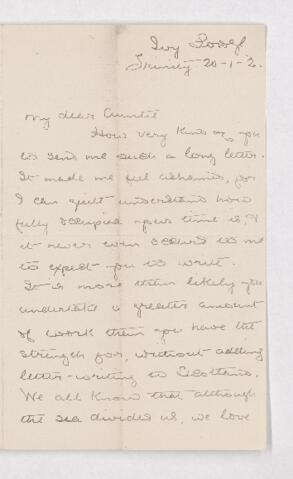 Ivy Lodge
Trinity 20-1-2.
My dear Auntie
How very kind of you
to send me such a long letter.
It made me feel ashamed, for
I can quite understand how
fully occupied your time is, &
it never even occurs to me
to expect you to write.
It is more than likely you
undertake a greater amount
of work than you have the
strength for, without adding
letter-writing to Scotland.
We all know that although
the sea divides us, we love